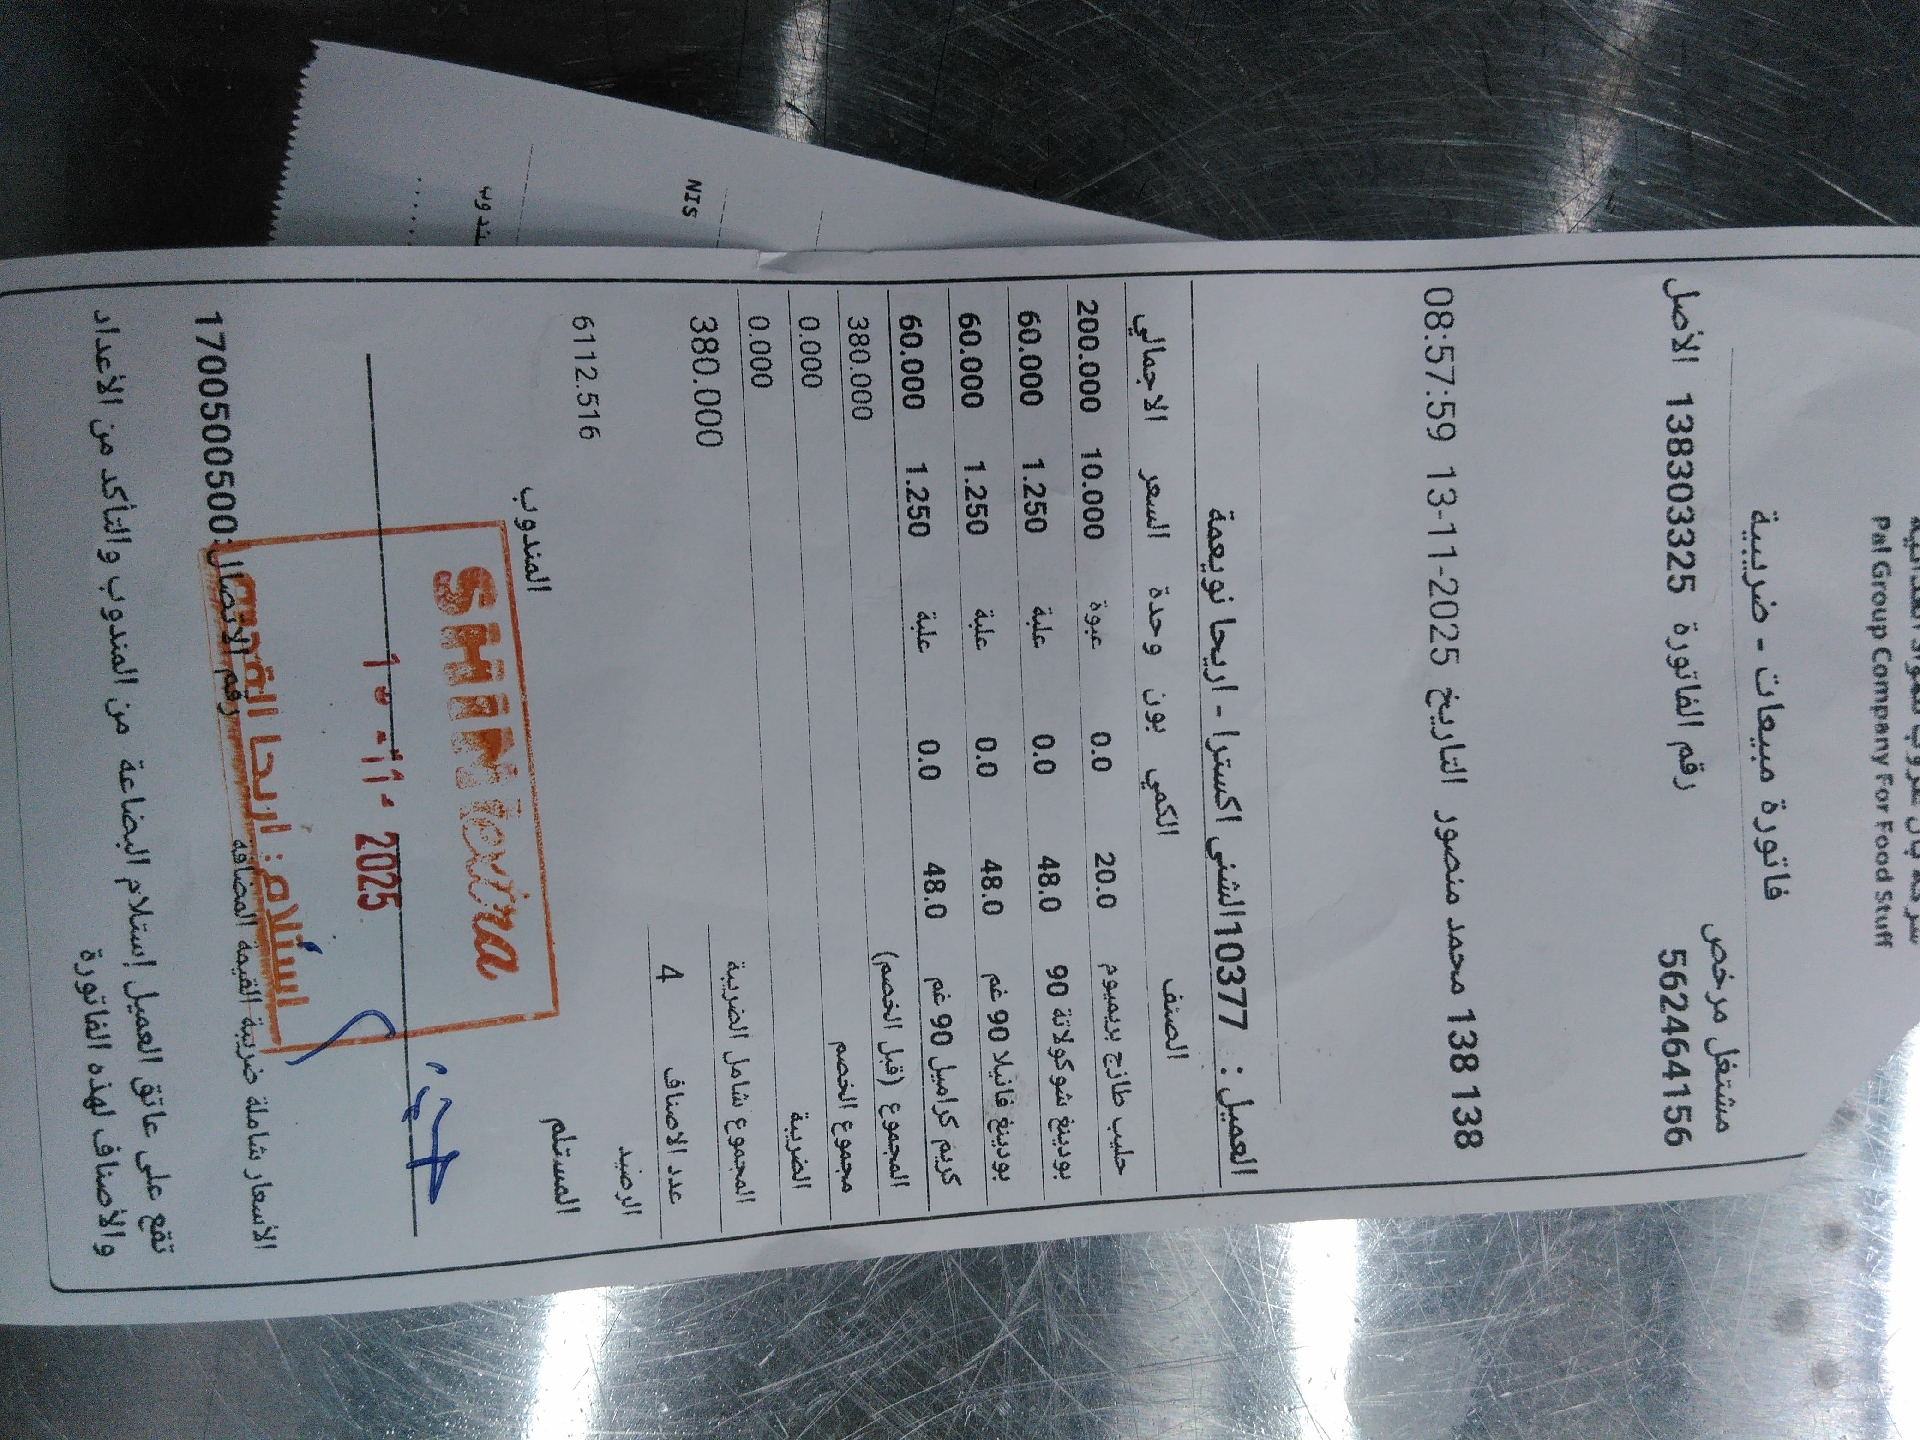 Pal Group Company For Food Stuff
فاتورة مبيعات - ضريبية
مشتغل مرخص
562464156 رقم الفاتورة 138303325 الأصل
138 138 محمد منصور التاريخ 13-11-2025 08:57:59
العميل : 10377الشني اكسترا - اريحا نويعمة
الصنف الكمي بون وحدة السعر الاجمالي
حليب طازج بريميوم 20.0 0.0 عبوة 10.000 200.000
بودينغ شوكولاتة 90 48.0 0.0 علبة 1.250 60.000
بودينغ فانيلا 90 غم 48.0 0.0 علبة 1.250 60.000
كريم كراميل 90 غم 48.0 0.0 علبة 1.250 60.000
المجموع (قبل الخصم) 380.000
مجموع الخصم 0.000
الضريبة 0.000
المجموع شامل الضريبة 380.000
عدد الاصناف 4
الرصيد 6112.516
المستلم المندوب
SHINI extra
2025
استلام: اريحا
الأسعار شاملة ضريبة القيمة المضافة رقم الاتصال:1700500500
تقع على عاتق العميل إستلام البضاعة من المندوب والتأكد من الأعداد
والأصناف لهذه الفاتورة
NIS